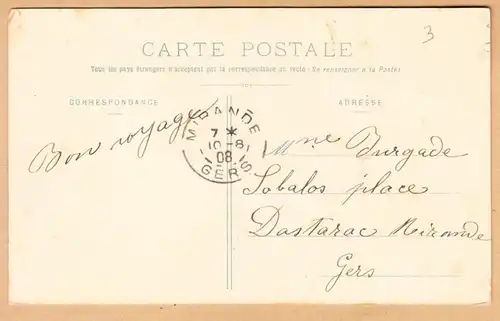 3
CARTE POSTALE
Tous les pays étrangers n'acceptent pas la correspondance au recto (Se renseigner à la Poste)
CORRESPONDANCE
ADRESSE
Bon voyage
MIRANDE
7 *
10 - 8
08
GERS
Mme Burgade
Sobalos place
Dastarac Mirande
Gers